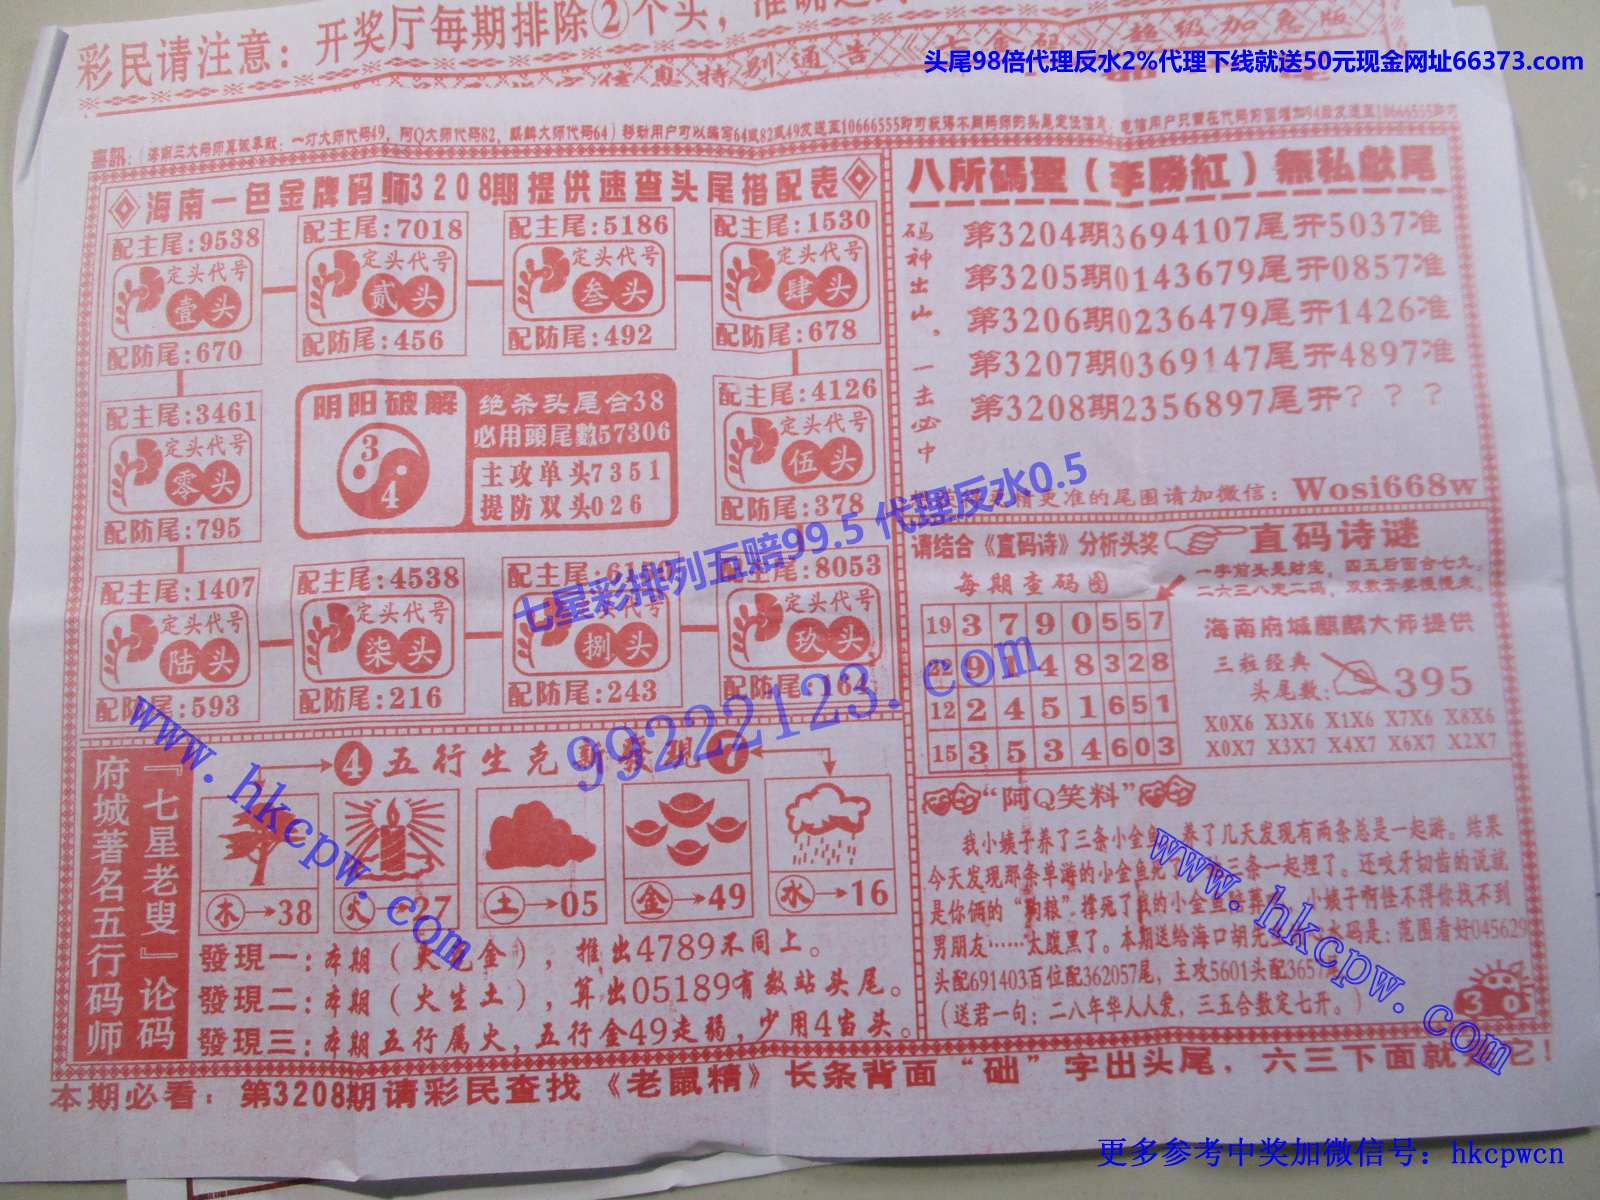 彩民请注意：开奖厅每期排除②个头，准确
信息特别通告《七
超级加免版
头尾98倍代理反水2%代理下线就送50元现金网址66373.com
喜訊：（海南三大码师真诚奉献：一灯大师代码49，阿Q大师代码82，麒麟大师代码64）移动用户可以编写64或82或49发送至10666555即可获得不同码师的头尾定位信息
海南一色金牌码师3208期提供速查头尾搭配表
配主尾:9538
定头代号
壹头
配防尾:670
配主尾:7018
定头代号
贰头
配防尾:456
配主尾:5186
定头代号
叁头
配防尾:492
配主尾:1530
定头代号
肆头
配防尾:678
配主尾:3461
定头代号
零头
配防尾:795
阴阳破解
3
4
绝杀头尾合38
必用頭尾數57306
主攻单头7351
提防双头026
配主尾:4126
定头代号
伍头
配防尾:378
配主尾:1407
定头代号
陆头
配防尾:593
配主尾:4538
定头代号
柒头
配防尾:216
配主尾:61
代号
捌头
配防尾:243
配主尾:8053
定头代号
玖头
配防尾:
八所碼聖（李勝紅）無私獻尾
码神出山，一击必中
第3204期3694107尾开5037准
第3205期0143679尾开0857准
第3206期0236479尾开1426准
第3207期0369147尾开4897准
第3208期2356897尾开？？？
更准的尾围请加微信：Wosi668w
请结合《直码诗》分析头奖
直码诗谜
每期查码图
一字前头是财宝，四五后面合七九。
二六三八定二码，双数齐要慢慢来。
19 3 7 9 0 5 5 7
22 9 1 4 8 3 2 8
12 2 4 5 1 6 5 1
15 3 5 3 4 6 0 3
海南府城麒麟大师提供
三粒经典
头尾数:
395
X0X6 X3X6 X1X6 X7X6 X8X6
X0X7 X3X7 X4X7 X6X7 X2X7
七星彩排列五赔99.5 代理反水0.5
99222123.com
『七星老叟』论码
府城著名五行码师
4 五行生克
木→38
火→27
土→05
金→49
水→16
發現一：本期（火克金），推出4789不同上。
發現二：本期（火生土），算出05189有数站头尾。
發現三：本期五行属火，五行金49走弱，少用4当头。
“阿Q笑料”
我小姨子养了三条小金鱼，养了几天发现有两条总是一起游。结果
今天发现那条单游的小金鱼死了 三条一起埋了。还咬牙切齿的说就
是你俩的“狗粮”撑死了我的小金鱼 小姨子啊怪不得你找不到
男朋友……太腹黑了。本期送给海口胡先生 码是：范围看好045629
头配691403百位配362057尾，主攻5601头配3657
（送君一句：二八年华人人爱，三五合数定七开。）
www.hkcpw.com
www.hkcpw.com
本期必看：第3208期请彩民查找《老鼠精》长条背面“础”字出头尾，六三下面就是它！
更多参考中奖加微信号：hkcpwcn